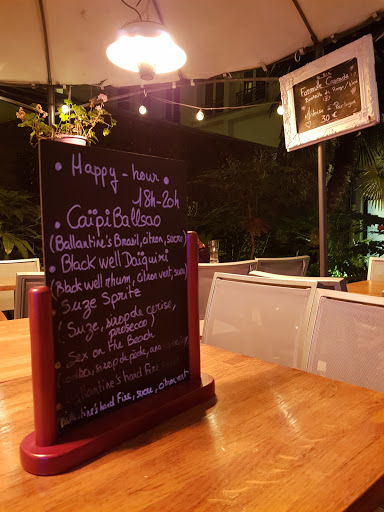 Happy-hour
18h-20h
CaïpiBallsao
(Ballantine's Brasil, citron, sucre)
Black well Daïquiri
(Black well rhum, citron vert, sucre)
Suze Sprite
(Suze, sirop de cerise,
prosecco)
Sex on the Beach
sirop de pêche, ananas
Ballantine's hard Fire
Ballantine's hard Fire, sucre, citron vert
Formule
à Partager
30 €